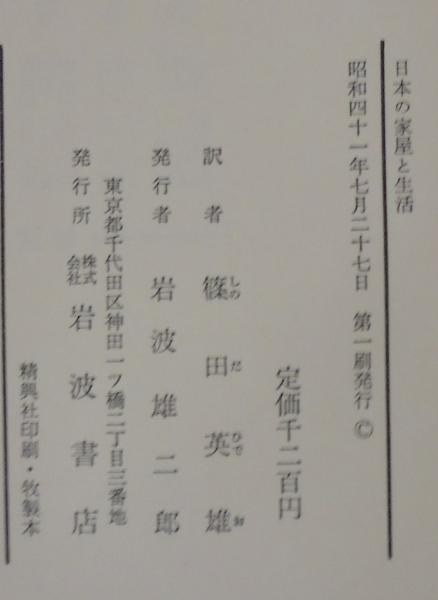 日本の家屋と生活
昭和四十一年七月二十七日 第一刷発行 ©
定価千二百円
訳者 篠田英雄
しのだひでお
発行者 岩波雄二郎
東京都千代田区神田一ツ橋二丁目三番地
発行所 株式会社 岩波書店
精興社印刷・牧製本